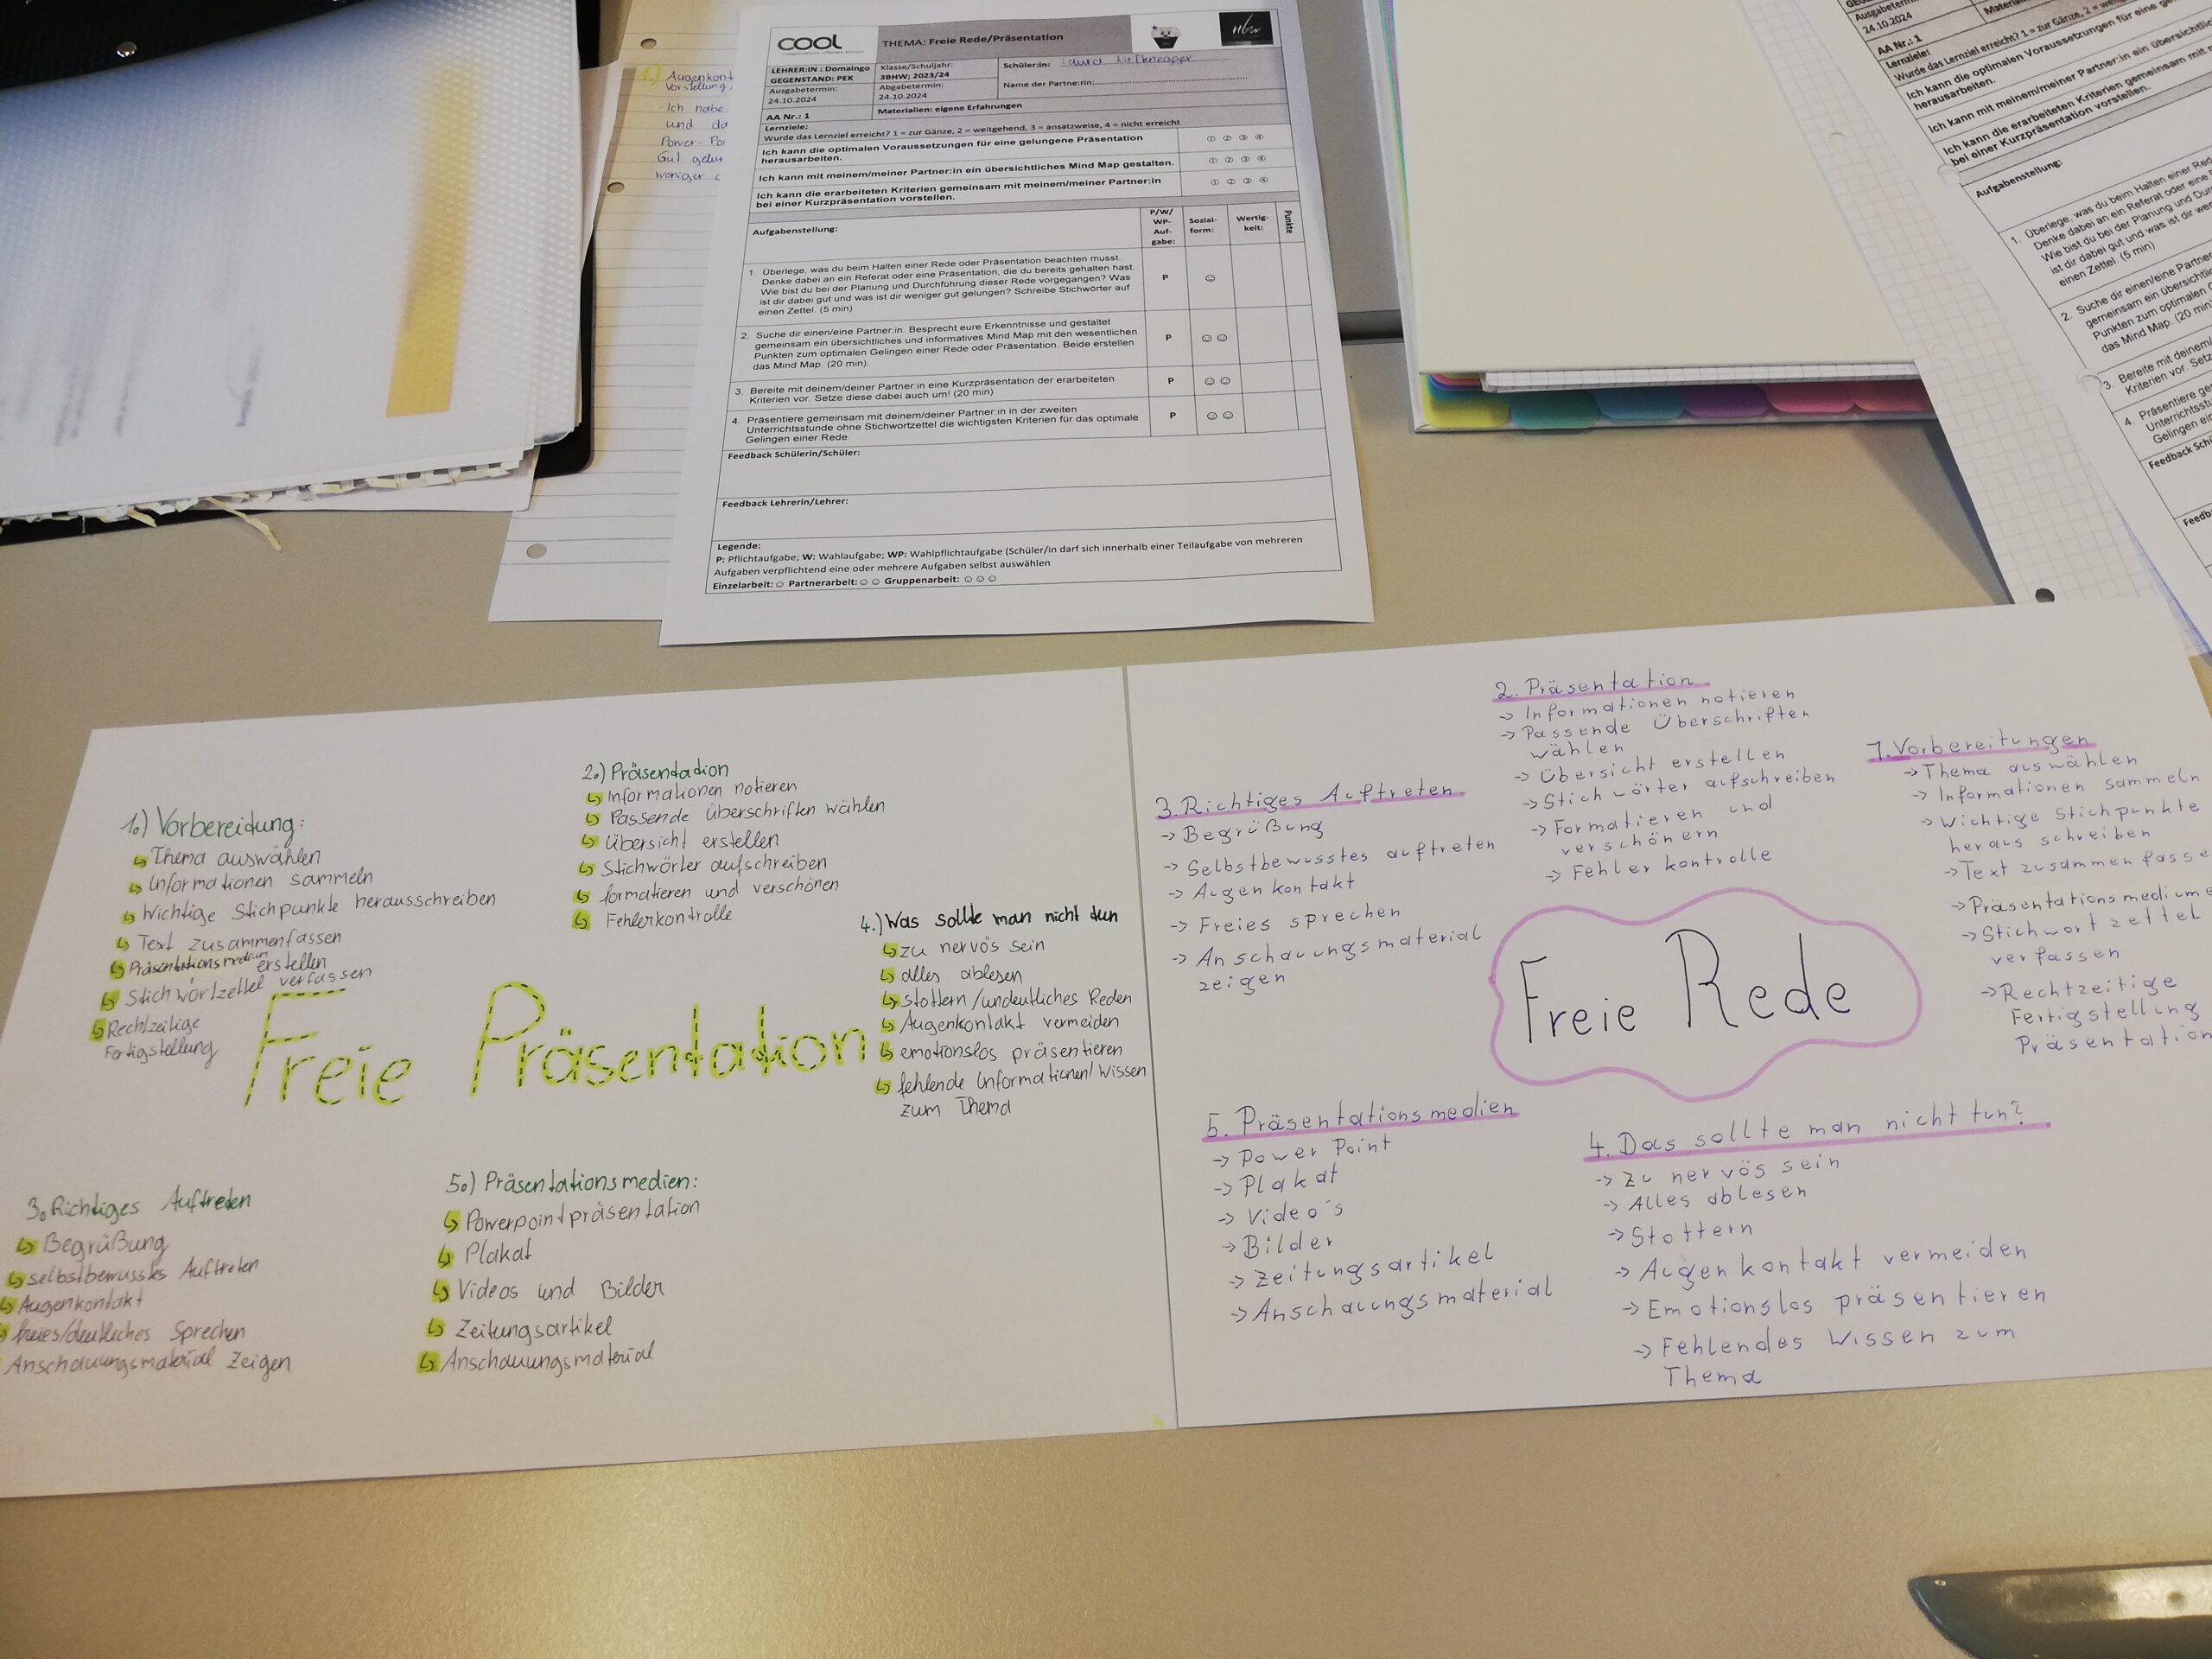 1.)
Augenkont
Vorstellung,
Ich habe
und da
Power-Poi
Gut gelun
weniger
COOL
THEMA: Freie Rede/Präsentation
LEHRER:IN : Domaingo
GEGENSTAND: PEK
Klasse/Schuljahr:
3BHW; 2023/24
Schüler:in: Laura
Name der Partner:in:
Ausgabetermin:
24.10.2024
Abgabetermin:
24.10.2024
AA Nr.: 1
Materialien: eigene Erfahrungen
Lernziele:
Wurde das Lernziel erreicht? 1 = zur Gänze, 2 = weitgehend, 3 = ansatzweise, 4 = nicht erreicht
Ich kann die optimalen Voraussetzungen für eine gelungene Präsentation
herausarbeiten.
① ② ③ ④
Ich kann mit meinem/meiner Partner:in ein übersichtliches Mind Map gestalten.
① ② ③ ④
Ich kann die erarbeiteten Kriterien gemeinsam mit meinem/meiner Partner:in
bei einer Kurzpräsentation vorstellen.
① ② ③ ④
Aufgabenstellung:
P/W/
WP-
Auf-
gabe:
Sozial-
form:
Wertig-
keit:
Punkte
1. Überlege, was du beim Halten einer Rede oder Präsentation beachten musst.
Denke dabei an ein Referat oder eine Präsentation, die du bereits gehalten hast.
Wie bist du bei der Planung und Durchführung dieser Rede vorgegangen? Was
ist dir dabei gut und was ist dir weniger gut gelungen? Schreibe Stichwörter auf
einen Zettel. (5 min)
P ☺
2. Suche dir einen/eine Partner:in. Besprecht eure Erkenntnisse und gestaltet
gemeinsam ein übersichtliches und informatives Mind Map mit den wesentlichen
Punkten zum optimalen Gelingen einer Rede oder Präsentation. Beide erstellen
das Mind Map. (20 min).
P ☺☺
3. Bereite mit deinem/deiner Partner:in eine Kurzpräsentation der erarbeiteten
Kriterien vor. Setze diese dabei auch um! (20 min)
P ☺☺
4. Präsentiere gemeinsam mit deinem/deiner Partner:in in der zweiten
Unterrichtsstunde ohne Stichwortzettel die wichtigsten Kriterien für das optimale
Gelingen einer Rede.
P ☺☺
Feedback Schülerin/Schüler:
Feedback Lehrerin/Lehrer:
Legende:
P: Pflichtaufgabe; W: Wahlaufgabe; WP: Wahlpflichtaufgabe (Schüler/in darf sich innerhalb einer Teilaufgabe von mehreren
Aufgaben verpflichtend eine oder mehrere Aufgaben selbst auswählen
Einzelarbeit: ☺ Partnerarbeit: ☺☺ Gruppenarbeit: ☺☺☺
24.10.2024
AA Nr.: 1
Lernziele:
Wurde das Lernziel erreicht? 1 = zur Gänze, 2 =
Ich kann die optimalen Voraussetzungen für eine
herausarbeiten.
Ich kann mit meinem/meiner Partner:in ein übersichtlich
Ich kann die erarbeiteten Kriterien gemeinsam mit
bei einer Kurzpräsentation vorstellen.
Aufgabenstellung:
1. Überlege, was du beim Halten einer
Denke dabei an ein Referat oder eine
Wie bist du bei der Planung und
ist dir dabei gut und was ist dir
einen Zettel. (5 min)
2. Suche dir einen/eine
gemeinsam ein
Punkten zum optimalen
das Mind Map. (20 min
3. Bereite mit deinem/
Kriterien vor. Setze
4. Präsentiere
Gelingen
1.) Vorbereitung:
↳ Thema auswählen
↳ Informationen sammeln
↳ Wichtige Stichpunkte herausschreiben
↳ Text zusammenfassen
↳ Präsentationsmedium erstellen
↳ Stichwortzettel verfassen
↳ Rechtzeitige
Fertigstellung
2.) Präsentation
↳ Informationen notieren
↳ Passende Überschriften wählen
↳ Übersicht erstellen
↳ Stichwörter aufschreiben
↳ formatieren und verschönen
↳ Fehlerkontrolle
4.) Was sollte man nicht tun
↳ zu nervös sein
↳ alles ablesen
↳ stottern/undeutliches Reden
↳ Augenkontakt vermeiden
↳ emotionslos präsentieren
↳ fehlende Informationen/Wissen
zum Thema
Freie Präsentation
3. Richtiges Auftreten
↳ Begrüßung
↳ selbstbewusstes Auftreten
↳ Augenkontakt
↳ freies/deutliches Sprechen
Anschauungsmaterial zeigen
5.) Präsentationsmedien:
↳ Powerpointpräsentation
↳ Plakat
↳ Videos und Bilder
↳ Zeitungsartikel
↳ Anschauungsmaterial
2. Präsentation
-> Informationen notieren
-> Passende Überschriften
wählen
-> Übersicht erstellen
-> Stichwörter aufschreiben
-> Formatieren und
verschönern
-> Fehler kontrolle
1. Vorbereitungen
-> Thema auswählen
-> Informationen sammeln
-> Wichtige Stichpunkte
heraus schreiben
-> Text zusammen fasse
-> Präsentationsmedium
-> Stichwort zettel
verfassen
-> Rechtzeitige
Fertigstellung
Präsentation
3. Richtiges Auftreten
-> Begrüßung
-> Selbstbewusstes auftreten
-> Augenkontakt
-> Freies sprechen
-> Anschauungsmaterial
zeigen
Freie Rede
5. Präsentationsmedien
-> Power Point
-> Plakat
-> Video's
-> Bilder
-> Zeitungsartikel
-> Anschauungsmaterial
4. Das sollte man nicht tun?
-> Zu nervös sein
-> Alles ablesen
-> Stottern
-> Augenkontakt vermeiden
-> Emotionslos präsentieren
-> Fehlendes Wissen zum
Thema